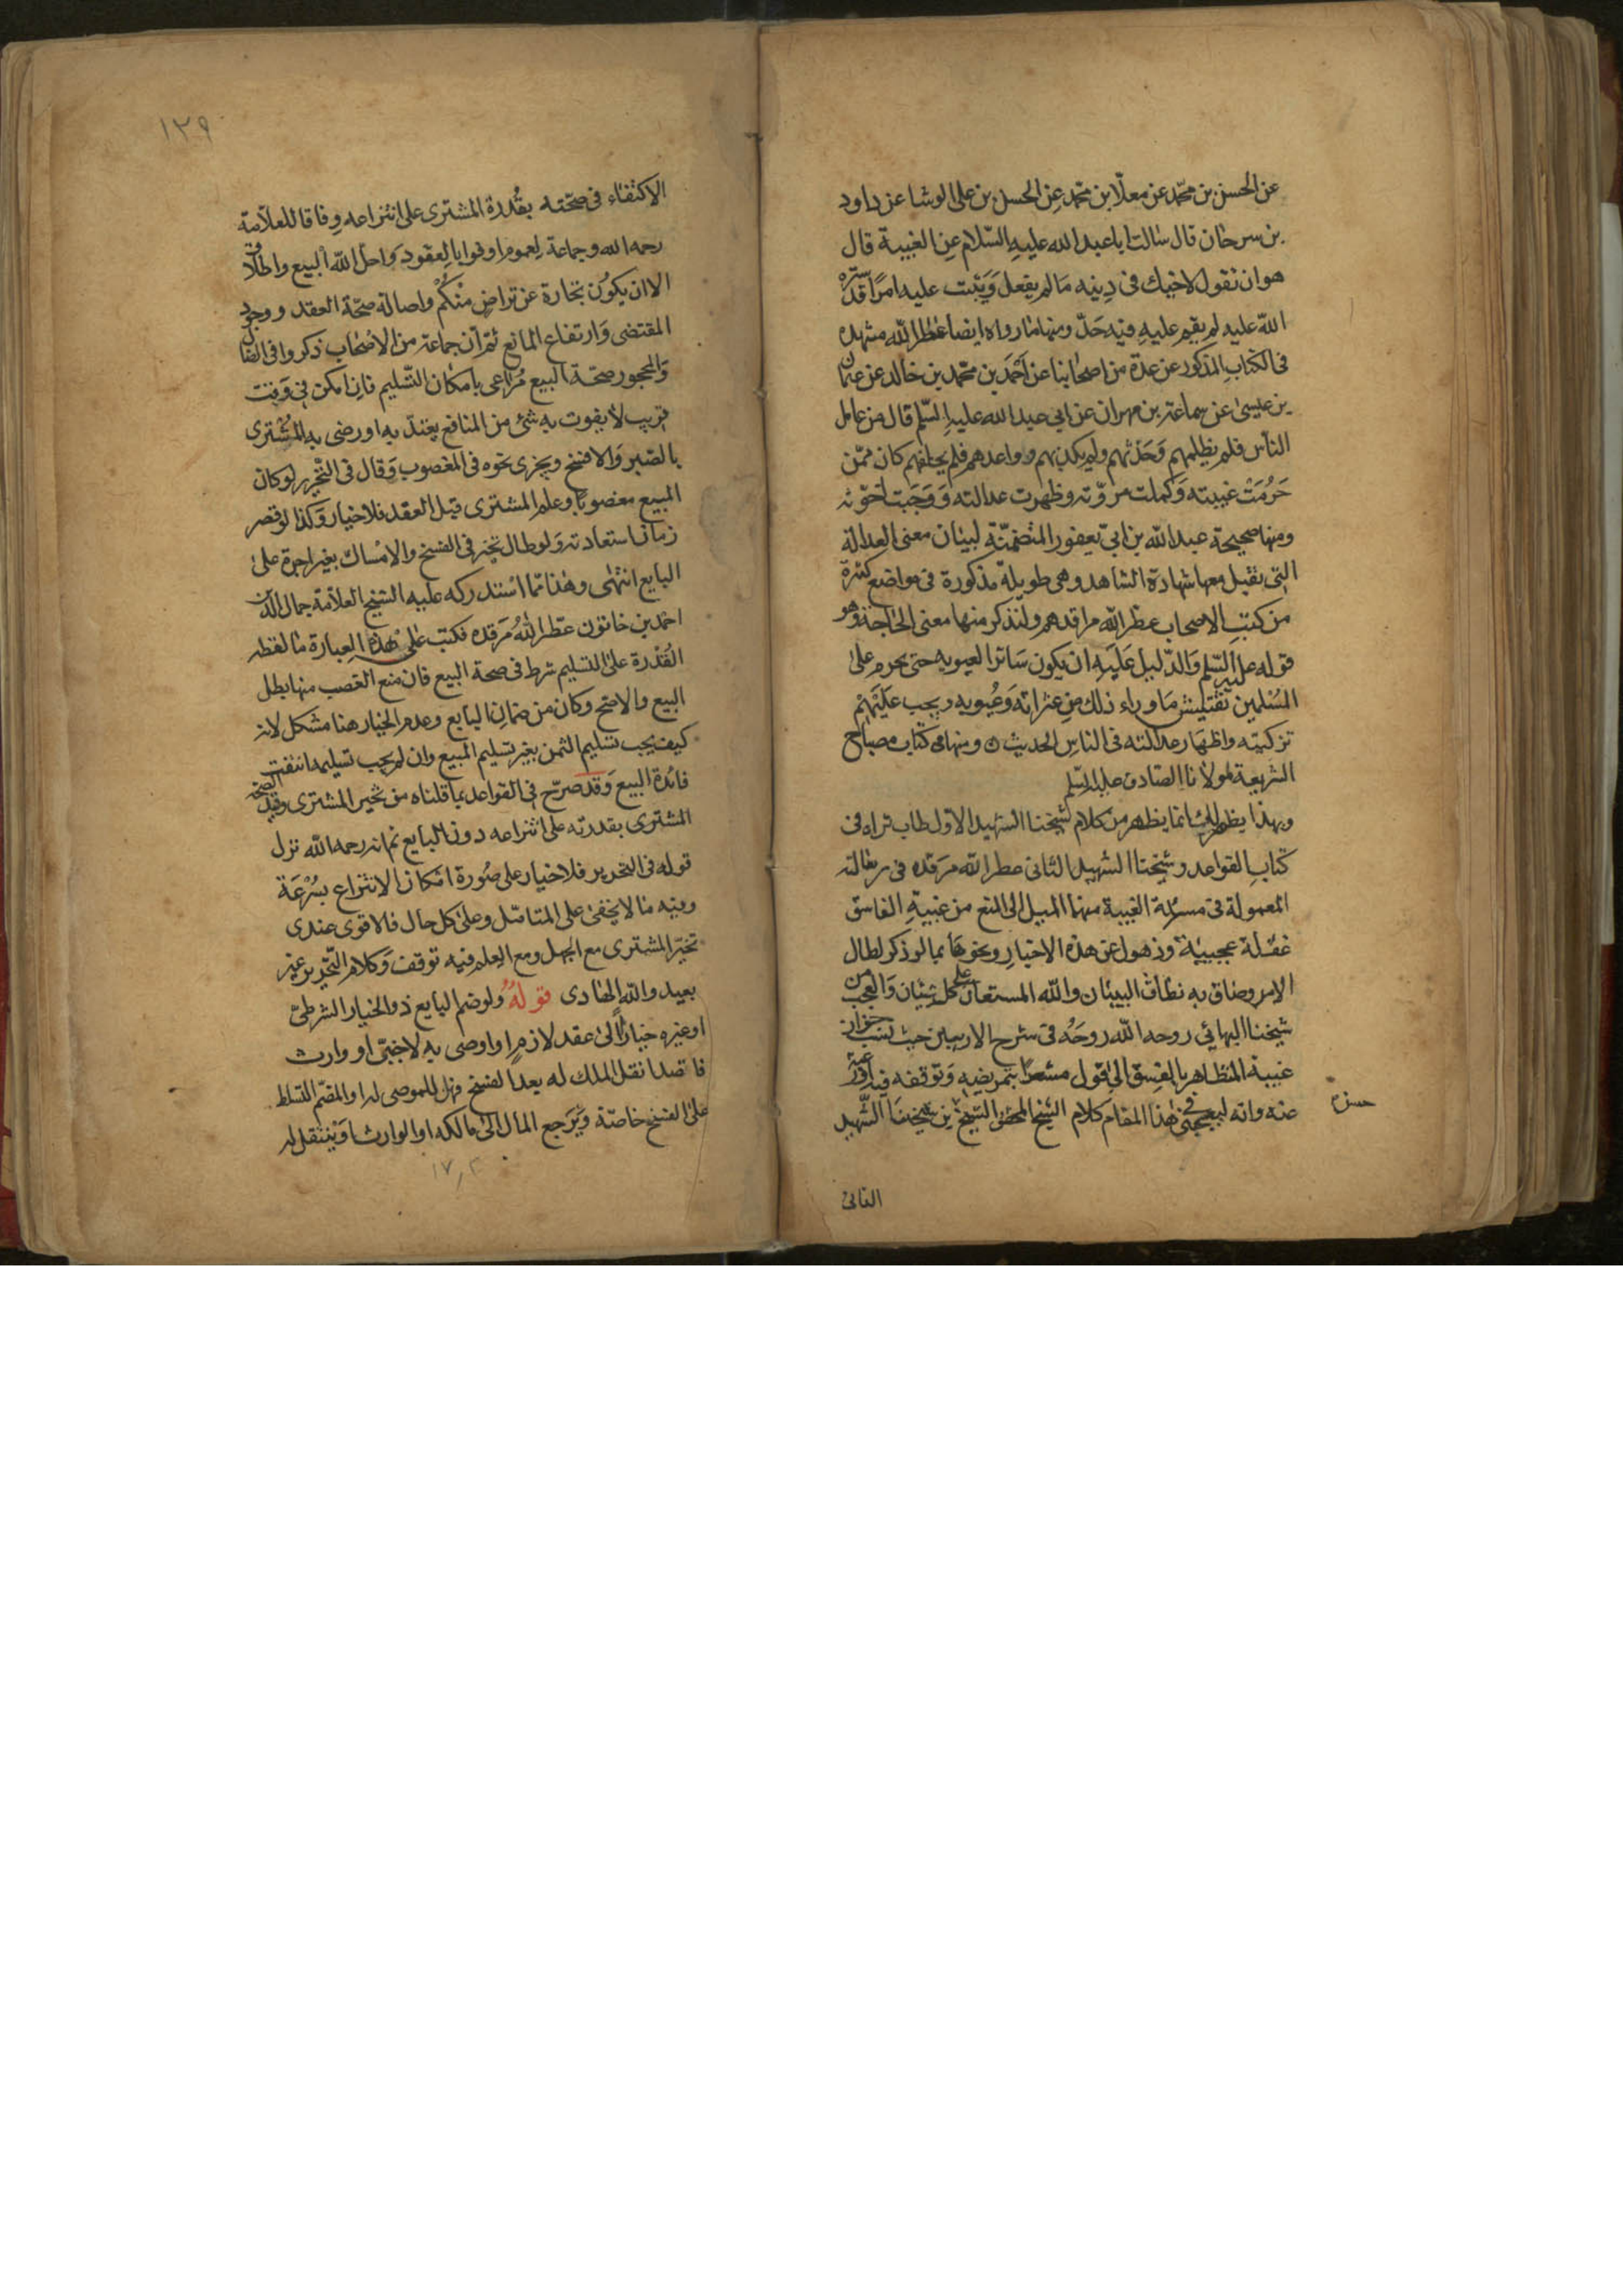 عن الحسين بن محمّد عن معلّا بن محمّد عن الحسن بن علی الوشا عن داود
بن سرحان قال سالت ابا عبد الله عليه السّلام عن الغيبة قال
هو ان تقول لاخيك فى دينه مالم يفعل وَيثبت عليه امرًا قد ستره
اللّه عليه لم يقم عليهِ فيه حَدّ ومنها مارواه ايضا عطر اللّه مشهده
فى الكتاب المذكور عن عدّة من اصحابنا عن اَحْمَد بن محمّد بن خالد عن عثمان
بن عيسىٰ عن سماعة بن مهران عن ابى عبد الله عليهِ السّلم قال من عامل
النّاس فلم يظلمهم وَحَدّثهم ولم يكذبهم وواعدهم فلم يخلفهم كان ممّن
حَرُمَتْ غيبته وَكملت مروّته وظهرت عدالته وَوَجَبت اخوّته
ومنها صحيحة عبد اللّه بن ابى يعفور المتضمّنة لبيان معنى العدالة
التى تقبل معها شهادة الشاهد وهى طويلة مذكورة فى مواضع كثيرة
من كتب الاصحاب عطر اللّه مراقدهم ولنذكر منها معنى الحاجة وهو
قوله عليه السّلم وَالدّليل عَلَيهِ ان يكون سَاترا لعيوبه حتى يحرم على
المُسْلمين تفتيش مَا وراء ذلك من عثراته وَعُيوبه ويجب عَلَيْهِمْ
تزكيته واظهَار عدالته فى الناس الحديث ومنها فى كتاب مصباح
الشريعة لمولانا الصّادق عليه السّلم
وبهذا يظهر لك انما يظهر من كلام شيخنا الشهيد الاوّل طاب ثراه فى
كتاب القواعد وشيخنا الشهيد الثانى عطر اللّه مَرقده فى رسالته
المعمولة فى مسئلة الغيبة منهما الميل الى المنع من غيبة الفاسق
غفلة عجيبة وذهول عن هذه الاخبار ونحوها بما لو ذكر لطال
الامر وضاق به نطاق البيان واللّه المستعان على كل شئان وَالعجب من
شيخنا البهائي روحه اللّه روحَهُ فى شرح الاربعين حيث نسب جواز
غيبة المتظاهر بالفسق الى القول مشعرًا بتمريضه وَتوقفه فيه
عنه وانه ليعجبنى فى هذا المقام كلام الشيخ المحقق الشيخ بن شيخنا الشّهيد
حسن
الثانى
١٣٩
الاكتفاء فى صحّته بقُدرة المشترى على انتزاعه وِفاقا للعلّامة
رحمه الله وجماعة لِعموم اوفوا بالعقود وَاحل اللّه البيع واطلاق
الا ان يكون تجارة عن تراضٍ منكُمْ واصالة صحّة العقد ووجود
المقتضى وَارتفاع المانع ثمّ ان جماعة من الاصْحاب ذكروا فى الضال
وَالمجحور صحّة البيع مُراعى بامكان التّسليم فان امكن فى وَقت
قريب لا يفوت به شئ من المنافع يعتدّ به اورضى به المُشترى
بالصّبر وَالا فسخ ويجزى نحوه فى المغصوب وَقال فى التّحرير لوكان
المبيع مغصوبًا وعلم المشترى قبل العقد فلا خيار وَكذا لوقصر
زمان استعادته وَلوطال تخير فى الفسخ والامْساك بغير اجرة علىٰ
البايع انتهٰى وهٰذا ممّا اسْتدركه عليه الشيخ العلاّمة جمال الدّين
احمد بن خاتون عطر اللّهُ مَرقده فكتب علىٰ هٰذه العبارة ما لفظه
القُدْرة على التسليم شرط فى صحة البيع فان منع الغصب منها بطل
البيع والا صح وكان من ضمان البايع وعدم الخيار هنا مشكل لانه
كيف يجب تسليم الثمن بغير تسليم المبيع وان لم يجب تسليمه انتفت
فائدة البيع وَقد صرّح فى القواعد بما قلناه من تخير المشترى وقيد الصّحّة
المشترى بقدرته على انتزاعه دون البايع ثم انه رحمه اللّه نزل
قوله فى التحرير فلا خيار على صُورة امكان الانتزاع بسُرْعَة
وفيه ما لا يخفىٰ على المتامّل وعلىٰ كل حال فالاقوى عندى
تخيّر المشترى مع الجهل ومع العِلم فيه توقف وَكلام التّحرير غير
بعيد واللّه الهادى قولهُ ولوضم البايع ذو الخيار الشرطىّ
اوغيره خيارًا الىٰ عقد لازم او اوصى به لاجنبىّ او وارث
قاصدا نقل الملك له بعد الفسخ فهل للموصى له او المضمّ التسلط
على الفسخ خاصّة وَيَرجع المال الىٰ مالكه او الوارث او ينتقل له